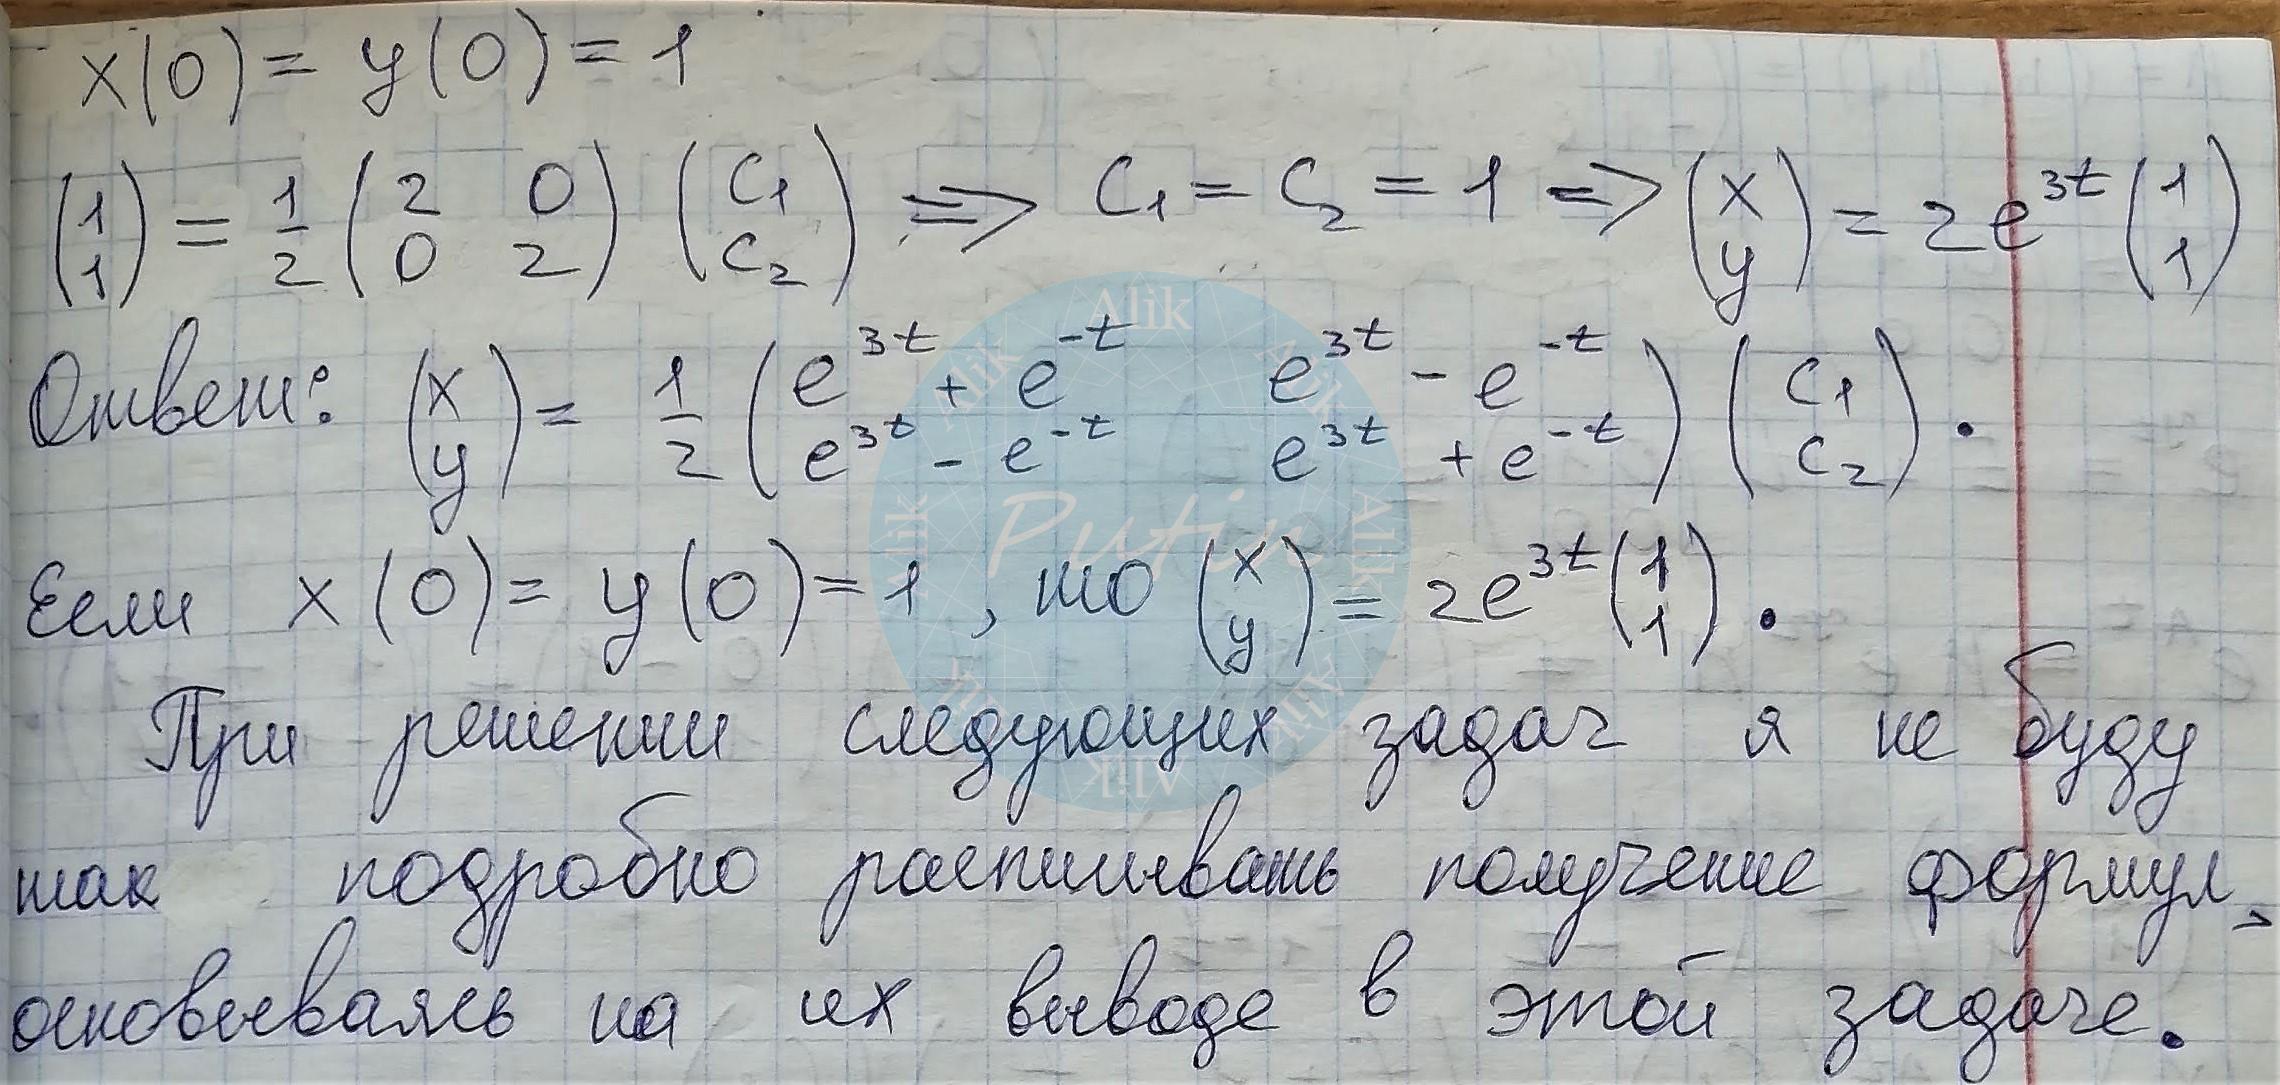 x(0) = y(0) = 1
(1 1) = 1/2 (2 0 0 2) (C₁ C₂) => C₁ = C₂ = 1 => (x y) = 2e^{3t} (1 1)
Ответ: (x y) = 1/2 (e^{3t} + e^{-t} e^{3t} - e^{-t} e^{3t} - e^{-t} e^{3t} + e^{-t}) (C₁ C₂).
Если x(0) = y(0) = 1, то (x y) = 2e^{3t} (1 1).
При решении следующих задач я не буду
так подробно расписывать получение формул,
основываясь на их выводе в этой задаче.
Alik
Alik
Alik
Alik
Alik
Alik
Alik
Alik
Putin